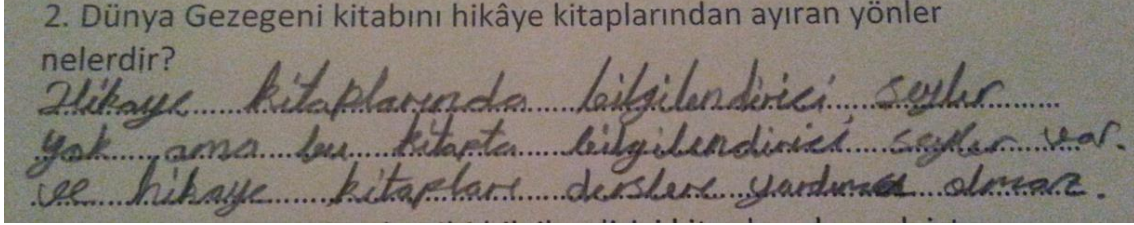 2. Dünya Gezegeni kitabını hikâye kitaplarından ayıran yönler
nelerdir?
Hikaye kitaplarında bilgilendirici seyler
yok ama bu kitapta bilgilendirici seyler var.
ve hikaye kitapları derslere yardımcı olmaz.